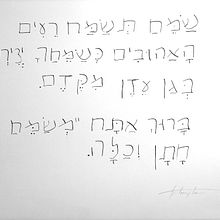 שַׂמֵּחַ תְּשַׂמַּח רֵעִים
הָאֲהוּבִים כְּשַׂמֵּחֲךָ יְצִירְךָ
בְּגַן עֵדֶן מִקֶּדֶם.
בָּרוּךְ אַתָּה יי מְשַׂמֵּחַ
חָתָן וְכַלָּה.